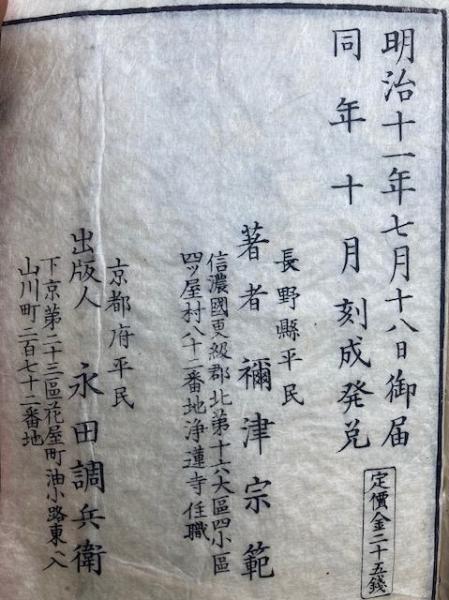 明治十一年七月十八日御届
同年十月刻成発兌
定價金二十五錢
長野縣平民
著者 禰津宗範
信濃國更級郡北第十六大區四小區
四ッ屋村八十二番地浄蓮寺住職
京都府平民
出版人 永田調兵衛
下京第二十三區花屋町油小路東入
山川町二百七十二番地